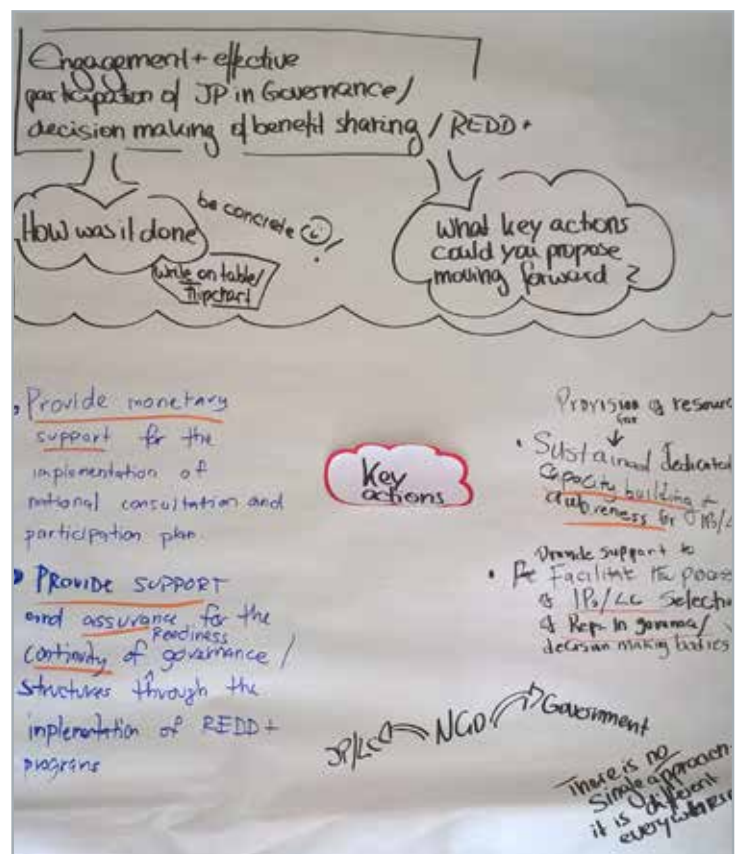 Engagement + effective
participation of JP in Governance/
decision making of benefit sharing / REDD+
How was it done
be concrete !
write on table/
flipchart
What key actions
could you propose
moving forward ?
Key
actions
• Provide monetary
support for the
implementation of
national consultation and
participation plan.
• PROVIDE SUPPORT
and assurance for the
Readiness
continuity of governance /
structures through the
implementation of REDD+
programs
Provision of resourc
for
• Sustained dedicated
capacity building +
awareness for IPs/L
Provide support to
• Facilitate the process
of IPs/LC Selecti
of Reps in
decision making bodies
JP/LC NGO Government
There is no
single approach
it is different
everywhere